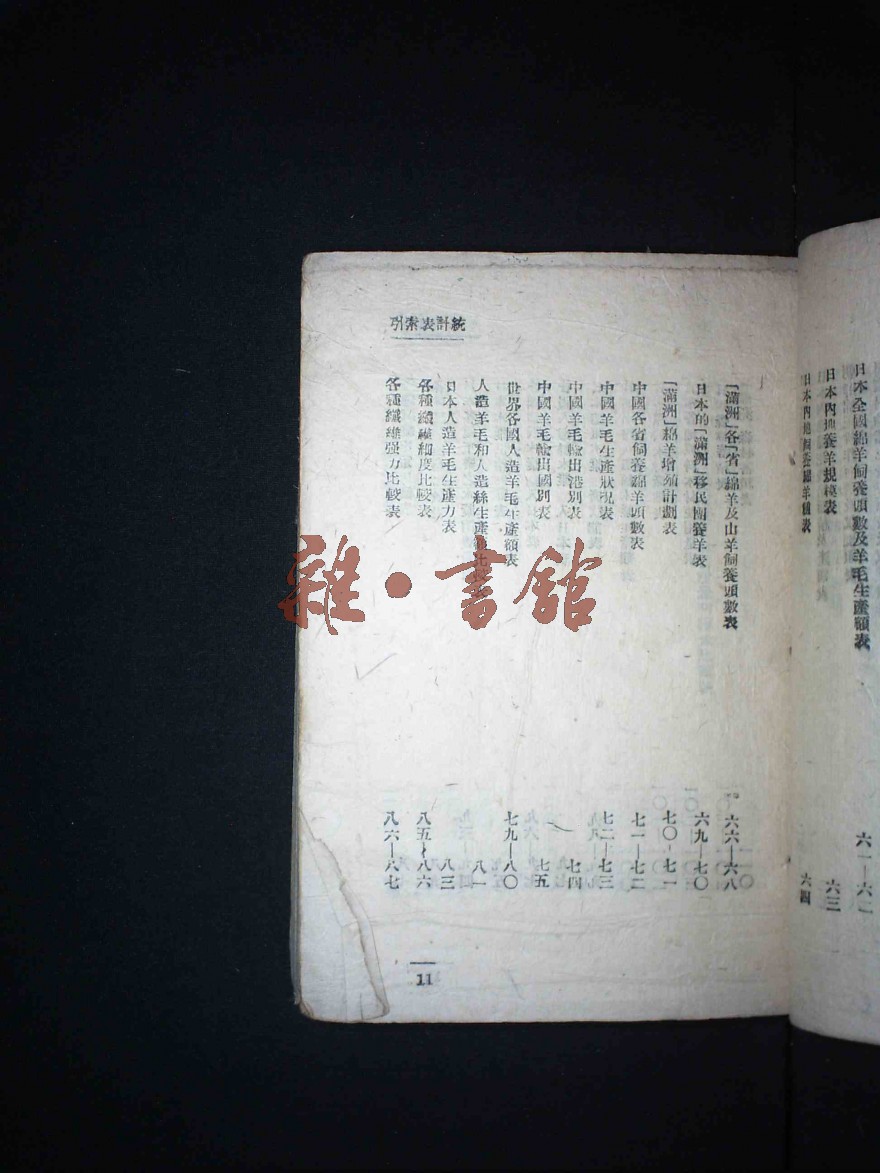 日本全國綿羊飼養頭數及羊毛生產額表 六一—六二
日本內地養羊規模表 六三
日本內地飼養綿羊種表 六四
統計表索引
「滿洲」各「省」綿羊及山羊飼養頭數表 六六—六八
日本的「滿洲」移民團養羊表 六九—七〇
「滿洲」綿羊增殖計劃表 七〇—七一
中國各省飼養綿羊頭數表 七一—七二
中國羊毛生產狀況表 七二—七三
中國羊毛輸出港別表 七四
中國羊毛輸出國別表 七五
世界各國人造羊毛生產額表 七九—八〇
人造羊毛和人造絲生產額比較表 八一
日本人造羊毛生產力表 八三
各種纖維細度比較表 八五—八六
各種纖維强力比較表 八六—八七
11
雜·書館